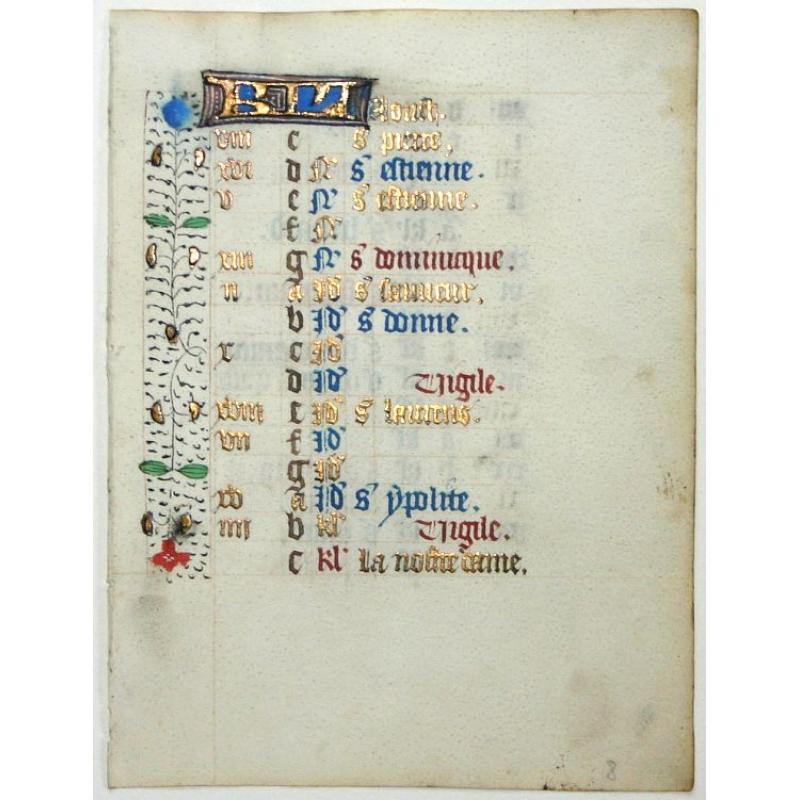 KL Aoust.
viii c s' pierre.
xvi d N' s' estienne.
v e N' s' estienne.
f N'
xiii g N' s' dominicque.
ii a Id'
b Id' s' donne.
x c Id'
d Id' Vigile.
xviii e Id' s' laurens.
vii f Id'
g Id'
xv a Id' s' ypolite.
iiii b kl' Vigile.
c kl' La nostre dame.
8